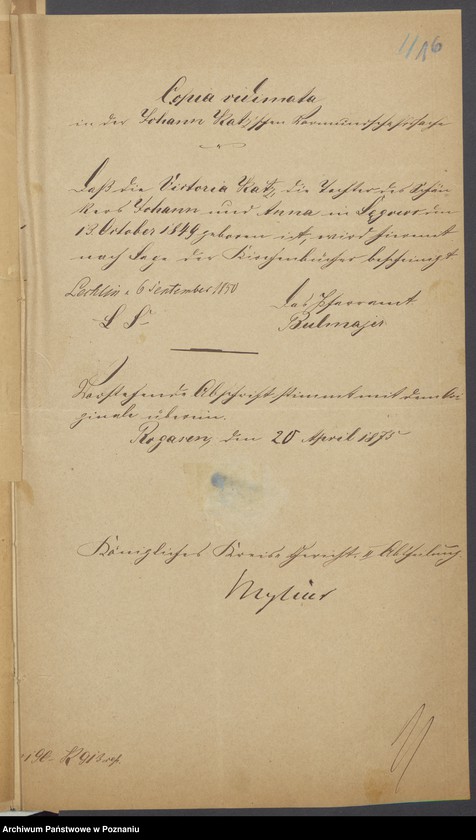 116
Copia vidimata
in der Johann Katz'schen Vormundschaftssache
Daß die Victoria Katz, die Tochter des Schän
kers Johann und Anna in den
13. October 1849 geboren ist, wird hiermit
nach Lage der Kirchenbücher bescheinigt
6 September 1850
Das Pfarramt
L. S.
Vorstehende Abschrift stimmt mit dem Ori
ginale überein.
Rogasen, den 20 April 1875
Königliches Kreis Gericht II Abtheilung
Mylius
Archiwum Państwowe w Poznaniu